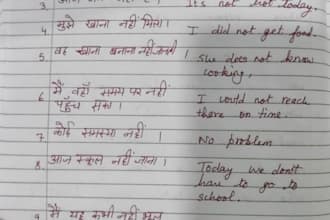 3. It's not hot today.
4. मुझे खाना नहीं मिला। I did not get food.
5. वह खाना बनाना नहीं जानती। She does not know
cooking,
6 मैं वहाँ समय पर नहीं I could not reach
पहुँच सका। there on time.
7 कोई समस्या नहीं। No problem
8. आज स्कूल नहीं जाना। Today we don't
have to go to
school.
9 मैं यह कभी नहीं